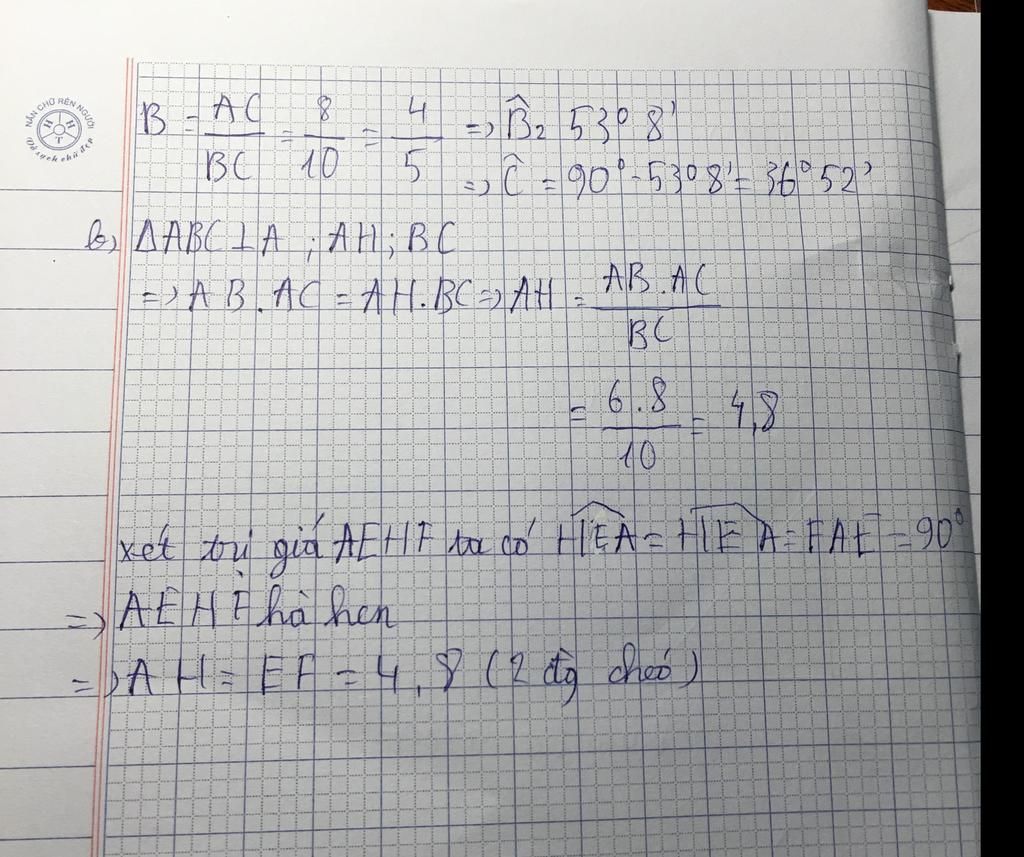 NẮN CHỮ RÈN NGƯỜI
H H T
Vở sạch chữ đẹp
B = AC/BC = 8/10 = 4/5 => B̂ = 53° 8'
=> Ĉ = 90° - 53° 8' = 36° 52'
b, ΔABC ⊥ A ; AH ; BC
=> AB . AC = AH . BC => AH = AB . AC/BC
= 6 . 8/10 = 4,8
xét tứ giá AEHF ta có HEA = HEA = FAE = 90°
=> AEHF hà hcn
=> AH = EF = 4,8 (2 đg cheó)